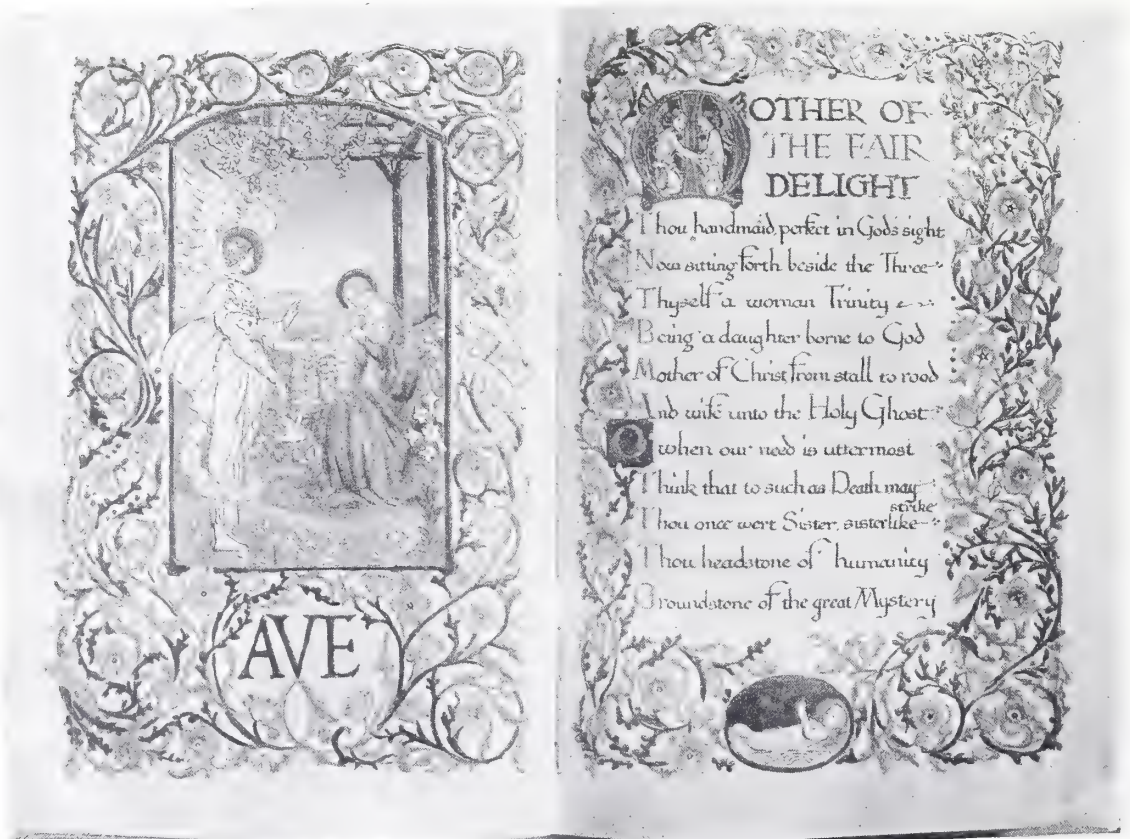 AVE
MOTHER OF
THE FAIR
DELIGHT
Thou handmaid perfect in God's sight
Now sitting forth beside the Three
Thyself a woman Trinity
Being a daughter borne to God
Mother of Christ from stall to rood
And wife unto the Holy Ghost
O when our need is uttermost
Think that to such as Death may strike
Thou once wert Sister, sisterlike
Thou headstone of humanity
Groundstone of the great Mystery